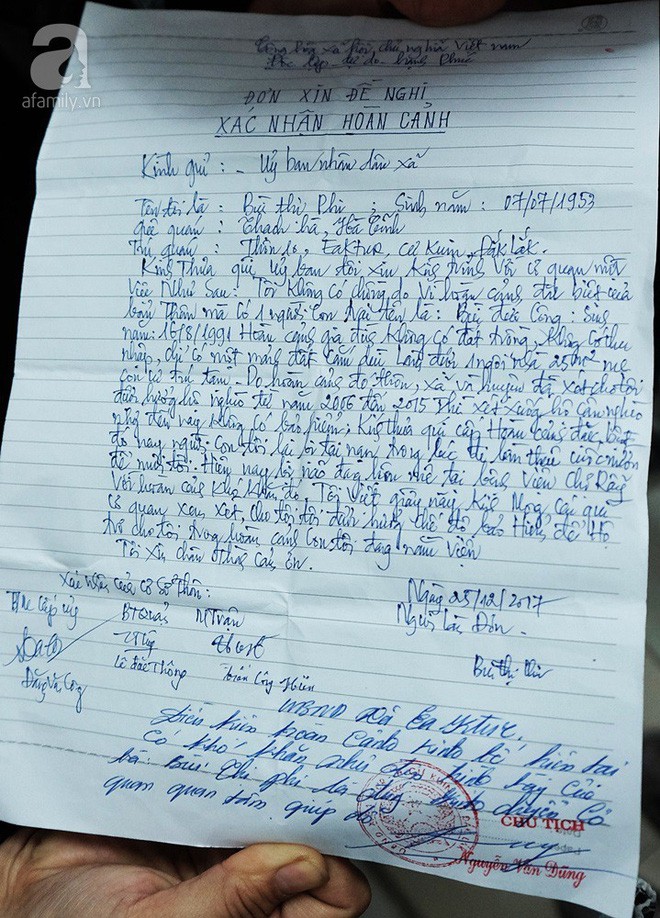 afamily.vn
Cộng hòa xã hội chủ nghĩa Việt nam
Độc lập - tự do - hạnh Phúc
ĐƠN XIN ĐỀ NGHỊ
XÁC NHẬN HOÀN CẢNH
Kính gửi : - Uỷ ban nhân dân xã
Tên tôi là : Bùi thị Phi ; Sinh năm : 07/07/1953
Quê quán : Thạch hà, Hà Tĩnh
Trú quán : Thôn 10, EaKtur, Cư Kuin, Đắk Lắk.
Kính Thưa quý uỷ ban tôi xin Kính trình với cơ quan một
việc Như Sau: Tôi Không có chồng do vì hoàn cảnh đặc biệt của
bản Thân mà có 1 người con trai tên là: Bùi đức Công: Sinh
năm: 16/8/1991 Hoàn cảnh gia đình Không có đất trồng, Không có thu
nhập, chỉ có một mảnh đất cắm dùi làm được 1 ngôi nhà 25m² mẹ
con cư trú tạm. Do hoàn cảnh đó thôn, xã và huyện đã xét cho tôi
được hưởng hộ nghèo từ năm 2006 đến 2015 thì xét xuống hộ cận nghèo
nhưng đến nay Không có bảo hiểm; Kính thưa quý cấp Hoàn cảnh đặc biệt
do nay người con tôi lại bị tai nạn trong lúc đi làm thuê cuốc mướn
để nuôi tôi. Hiện nay tôi nó đang hôn mê tại bệnh Viện Chợ Rẫy
Với hoàn cảnh Khó Khăn đó. Tôi Viết giấy này Kính Mong các quý
cơ quan xem xét, cho tôi được hưởng chế độ bảo Hiểm để Hỗ
trợ cho tôi trong hoàn cảnh con tôi đang nằm viện
Tôi Xin chân thành cảm ơn.
Xác nhận của cơ sở thôn: Ngày 25/12/2017
BTQuản MTrận Người làm Đơn.
Lê đắc Thông Trần Công Hiền Bùi Thị Phi
Đặng Văn Công
UBND xã Ea Ktur.
Điều kiện hoàn cảnh kinh tế hiện tại
Có khó khăn như đơn trình bày của
bà: Bùi Thị phi là đúng
quan quan tâm giúp đỡ
CHỦ TỊCH
Nguyễn Văn Dũng